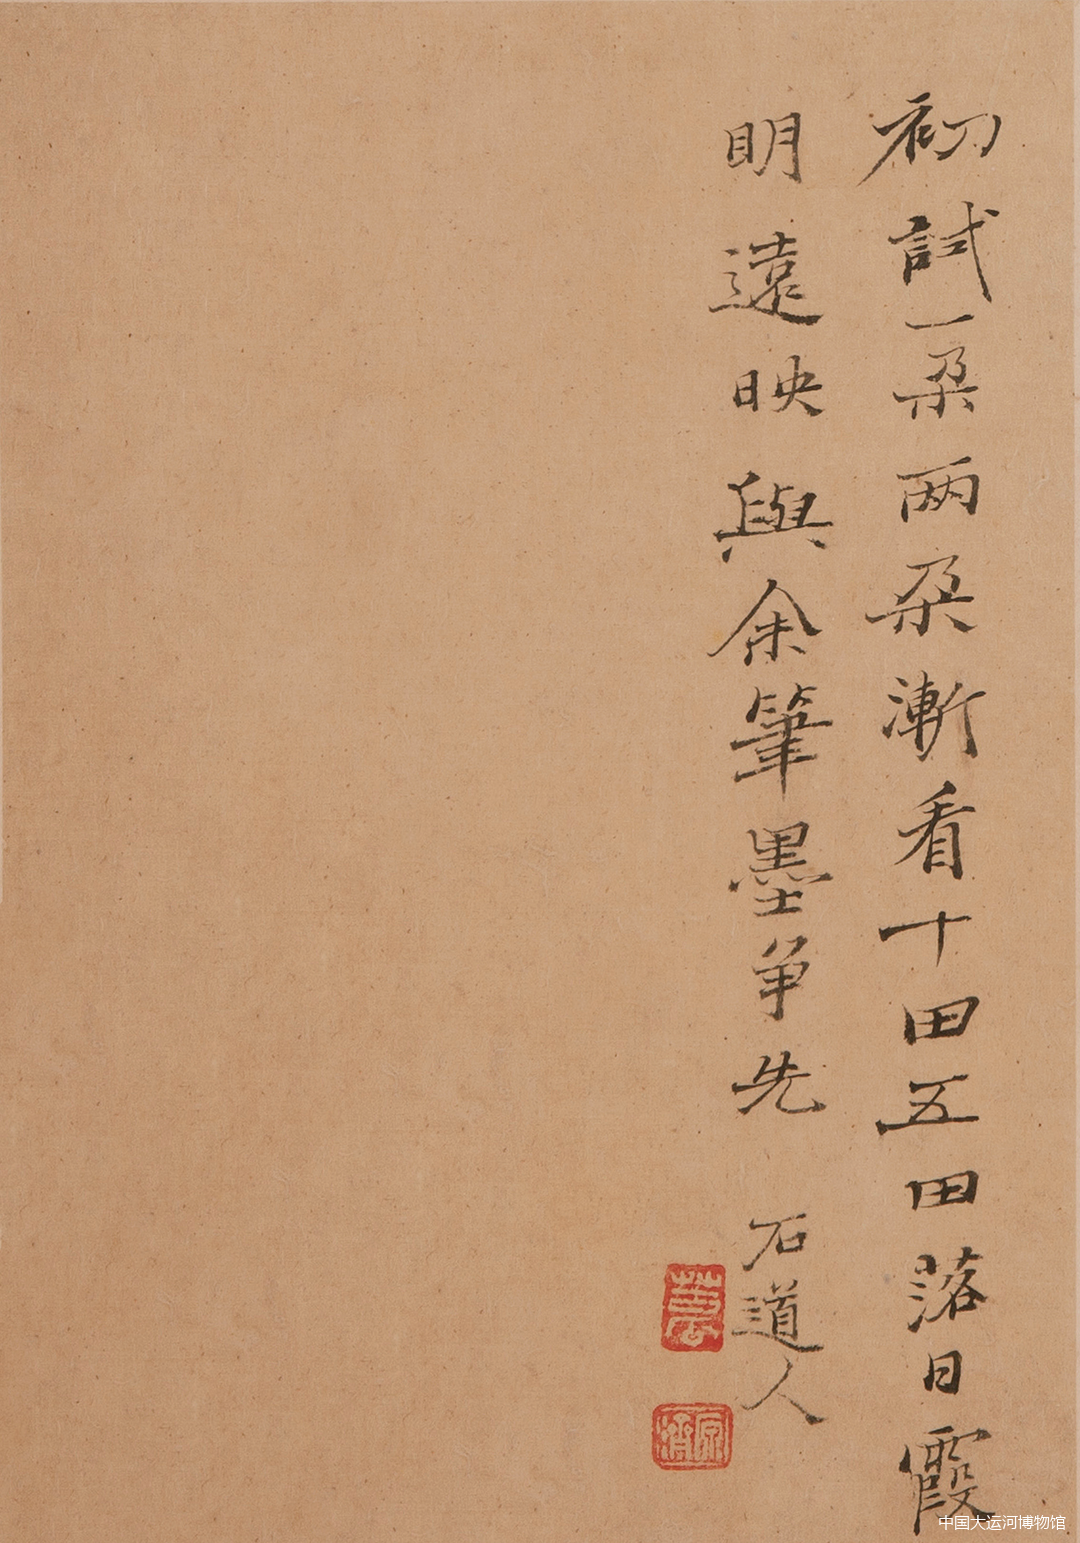 初試一朶两朶漸看十田五田落日霞
明遠映與余筆墨争先
石道人
原濟
中国大运河博物馆